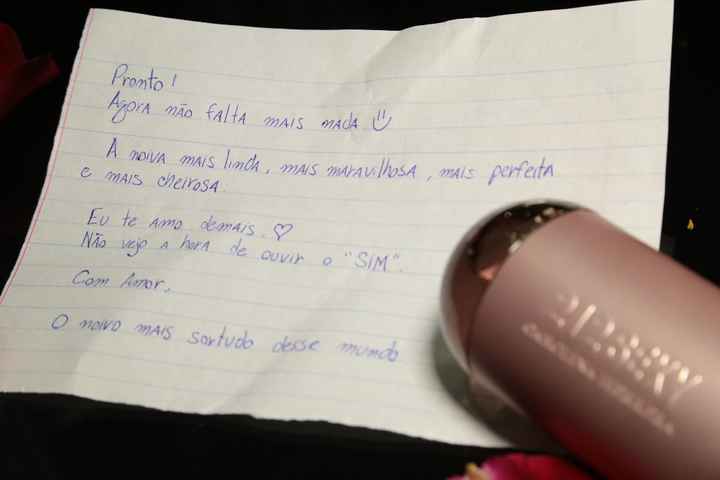 Pronto!
Agora não falta mais nada
A noiva mais linda, mais maravilhosa, mais perfeita
e mais cheirosa.
Eu te amo demais. ♡
Não vejo a hora de ouvir o "SIM".
Com Amor,
O noivo mais sortudo desse mundo
212 SEXY
CAROLINA HERRERA